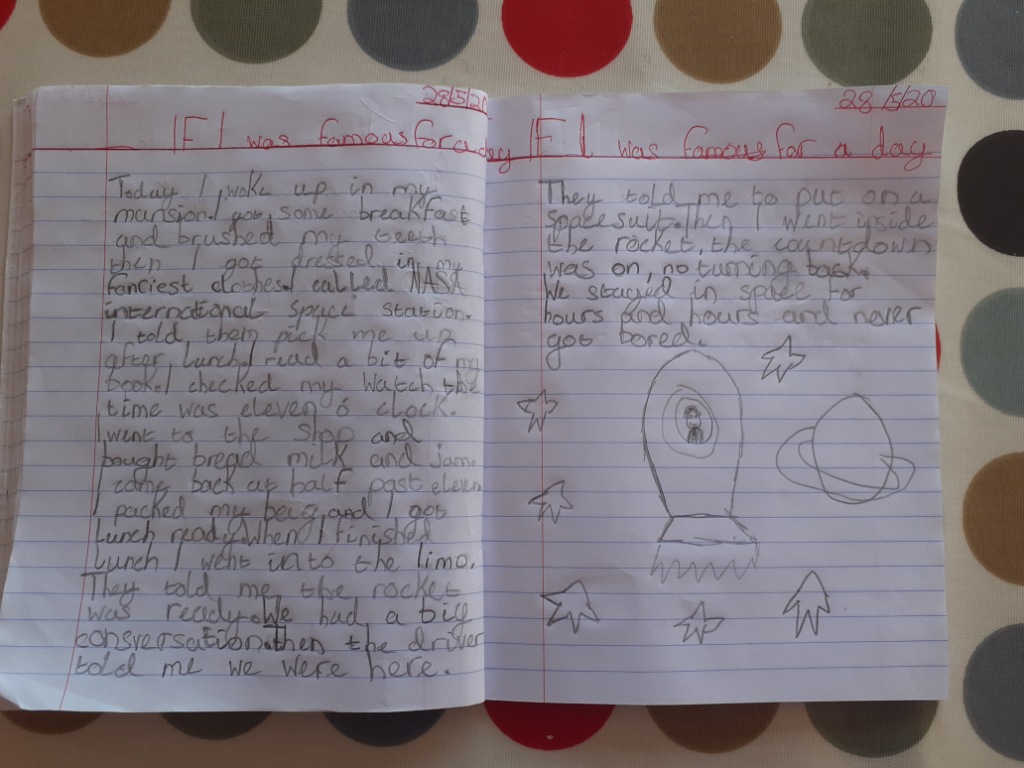 28/5/20
IF I was famous for a day
Today I woke up in my
mansion.I got some breakfast
and brushed my teeth
then I got dressed in my
fanciest clothes.I called NASA
international space station.
I told them pick me up
after lunch.I read a bit of my
book.I checked my watch the
time was eleven o clock.
I went to the shop and
bought bread milk and jam.
I came back at half past eleven
I packed my bag and I got
lunch ready.When I finished
lunch I went into the limo.
They told me the rocket
was ready.We had a big
conversation.then the driver
told me we were here.
28/5/20
IF I was famous for a day
They told me to put on a
space suit.Then I went inside
the rocket, the countdown
was on, no turning back.
We stayid in space for
hours and hours and never
got bored.